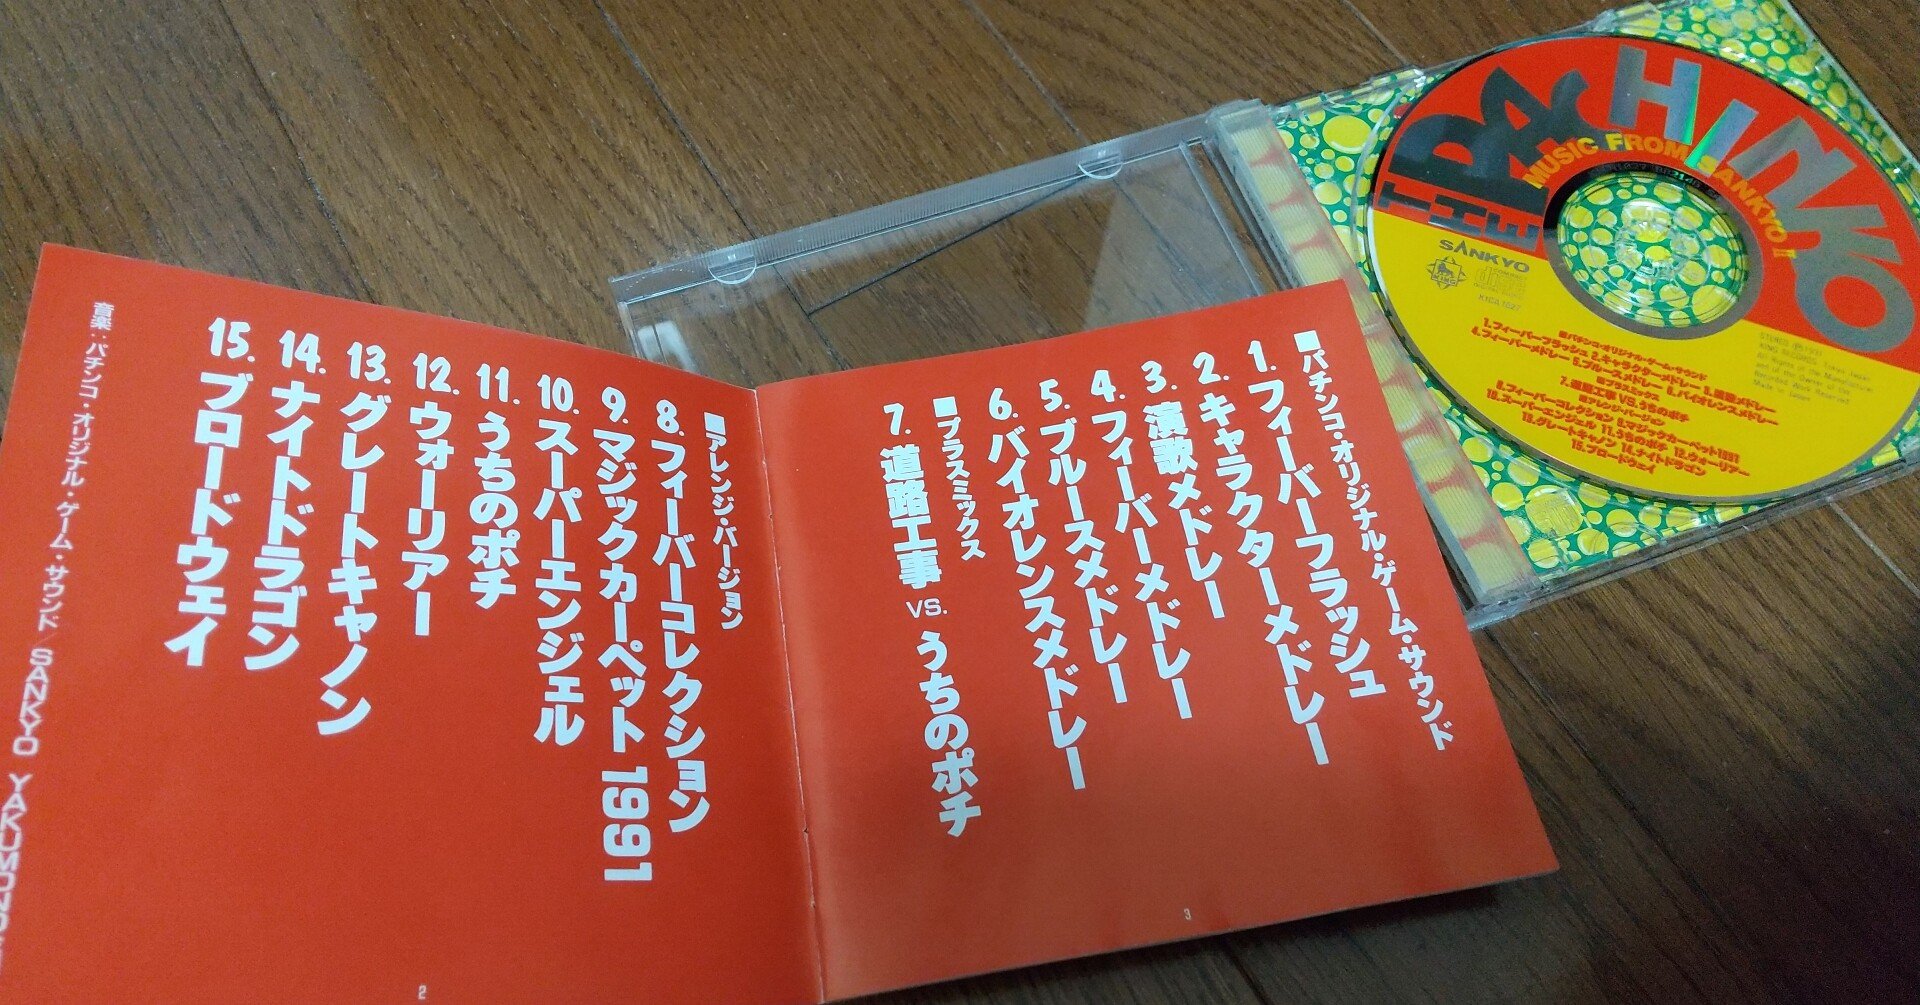 ■パチンコ・オリジナル・ゲーム・サウンド
1.フィーバーフラッシュ
2.キャラクターメドレー
3.演歌メドレー
4.フィーバーメドレー
5.ブルースメドレー
6.バイオレンスメドレー
■プラスミックス
7.道路工事 vs. うちのポチ
3
■アレンジ・バージョン
8.フィーバーコレクション
9.マジックカーペット 1991
10.スーパーエンジェル
11.うちのポチ
12.ウォーリアー
13.グレートキャノン
14.ナイトドラゴン
15.ブロードウェイ
音楽:パチンコ・オリジナル・ゲーム・サウンド/SANKYO
2
THE PACHINKO
MUSIC FROM SANKYO!!
SANKYO
KING
COMPACT
disc
DIGITAL AUDIO
■パチンコ・オリジナル・ゲーム・サウンド
1.フィーバーフラッシュ 2.キャラクターメドレー 3.演歌メドレー
4.フィーバーメドレー 5.ブルースメドレー 6.バイオレンスメドレー
■プラスミックス
7.道路工事 VS. うちのポチ
■アレンジ・バージョン
8.フィーバーコレクション 9.マジックカーペット1991
10.スーパーエンジェル 11.うちのポチ 12.ウォーリアー
13.グレートキャノン 14.ナイトドラゴン
15.ブロードウェイ